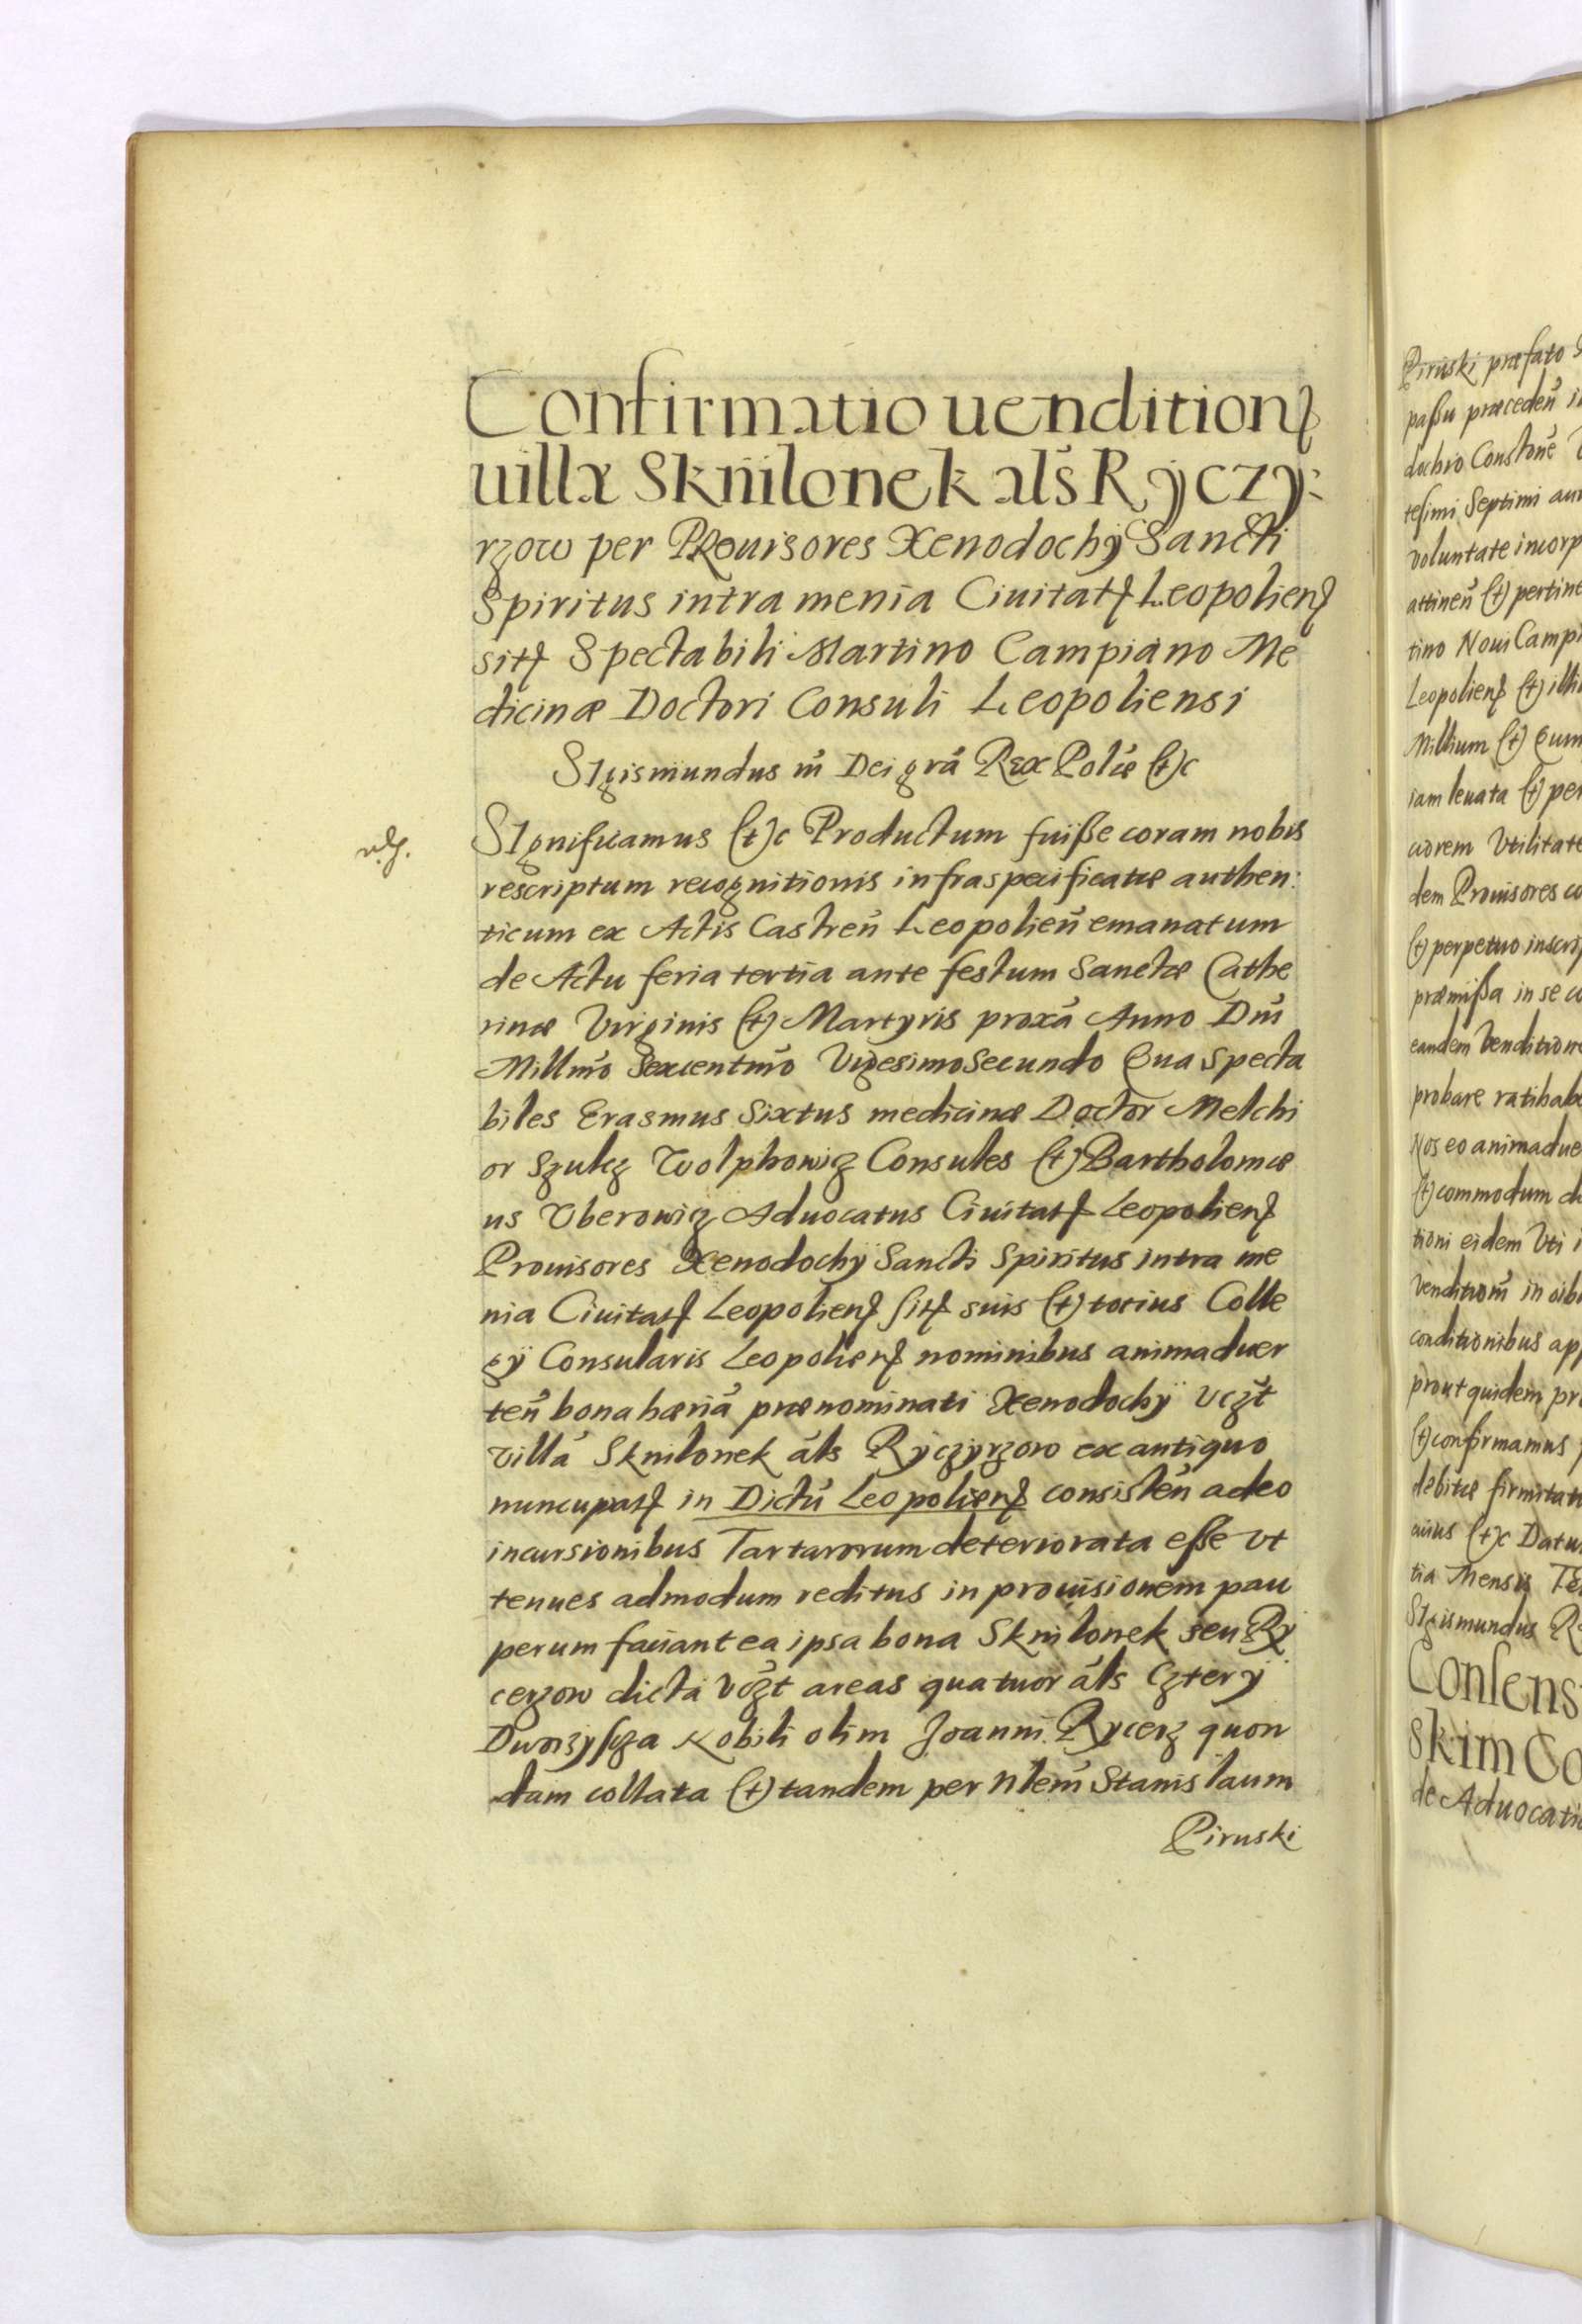 Confirmatio uendition̄
uillæ Sknilonek al̄s Ryczy:
rzow per PRouisores Xenodochÿ Sancti
Spiritus intra menia Ciuitat̄ Leopolien̄
sit̄ Spectabili Martino Campiano Me
dicinæ Doctori Consuli Leopoliensi
SIgismundus iii Dei grā Rex Polæ (t)c
SIgnificamus (t)c Productum fuiße coram nobis
rescriptum recognitionis infraspecificatæ authen:
ticum ex Actis Castren̄ Leopolien̄ emanatum
de Actu feria tertia ante festum Sanctæ Cathe
rinæ Virginis (t) Martyris proxā Anno Dn̄i
Millmō Sexcentmō Vigesimo Secundo Qua Specta
biles Erasmus Sixtus medicinæ Doctor Melchi
or Szulcz Wolphowicz Consules (t) Bartholomæ
us Vberowicz Aduocatus Ciuitat̄ Leopolien̄
Prouisores Xenodochÿ Sancti Spiritus intra me
nia Ciuitat̄ Leopolien̄ sit̄ suis (t) totius Colle
gÿ Consularis Leopolien̄ nominibus animaduer
ten̄ bona hæriā prænominati Xenodochÿ vczt̄
villā Sknilonek āls Ryczyrzow ex antiquo
nuncupat̄ in Dictū Leopolien̄ consisten̄ adeo
incursionibus Tartarorum deteriorata eße vt
tenues admodum reditus in prouisionem pau
perum faciant ea ipsa bona Sknilonek seu Ry
cerzow dicta vczt̄ areas quatuor āls Czterÿ
Dworzyscza Nobili olim Joanni Rycerz quon
dam collata (t) tandem per Nlem̄ Stanislaum
Piruski
Piruski præfato
paßu præceden̄
dochio Constōne
tesimi Septimi
voluntate incorp
attinen̄ (t) pertine
tino Noui Campi
Leopolien̄ (t) illi
Millium (t)
iam leuata (t) per
Vtilitate
dem Prouisores co
(t) perpetuo inscrip
præmißa in se co
eandem Venditione
probare ratihabe
Nos eo animadue
(t) commodum
tioni eidem Vti
Venditiōni in oību
conditionibus app
prout quidem pr
(t) confirmamus
debitæ firmitati
cuius (t)c Datum
tia Mensis
SIgismundus R
Consens
skim Co
de Aduocatio